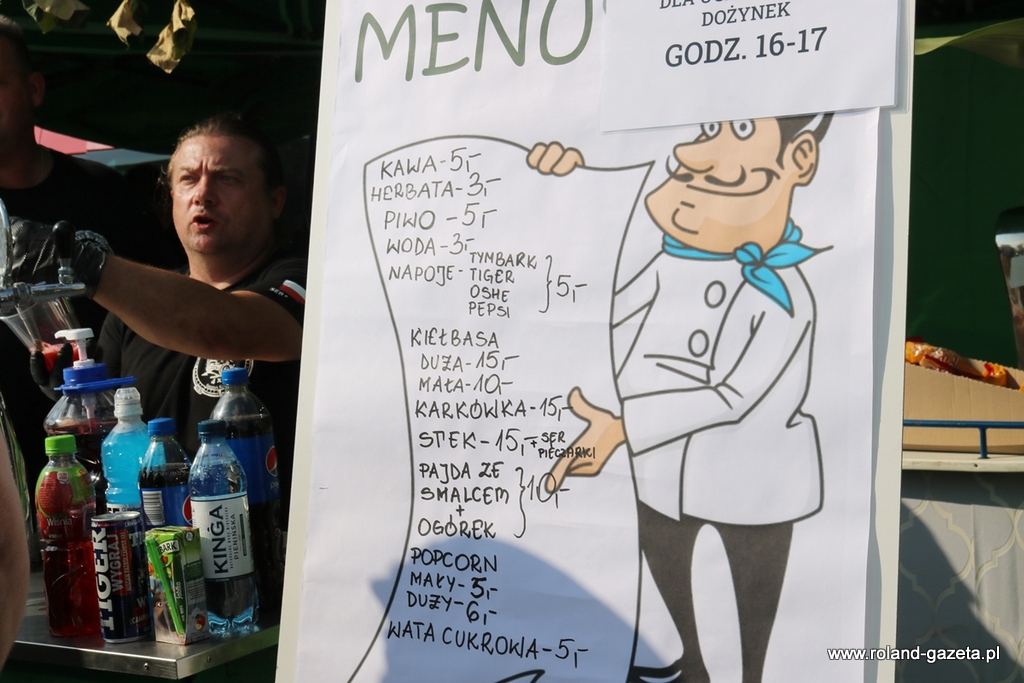 MENU
DOŻYNEK
GODZ. 16-17
KAWA-5,-
HERBATA-3,-
PIWO -5,-
WODA-3,-
NAPOJE - TYMBARK
TIGER
OSHE
PEPSI
}5,-
KIEŁBASA
DUŻA-15,-
MAŁA-10,-
KARKÓWKA-15,-
STEK-15,- + SER
PIECZARKI
PAJDA ZE
SMALCEM
+
OGÓREK
}10,-
POPCORN
MAŁY-5,-
DUŻY-6,-
WATA CUKROWA-5,-
Wiśnia
TIGER
WYGRAJ
BARK
KINGA
PIENIŃSKA
www.roland-gazeta.pl